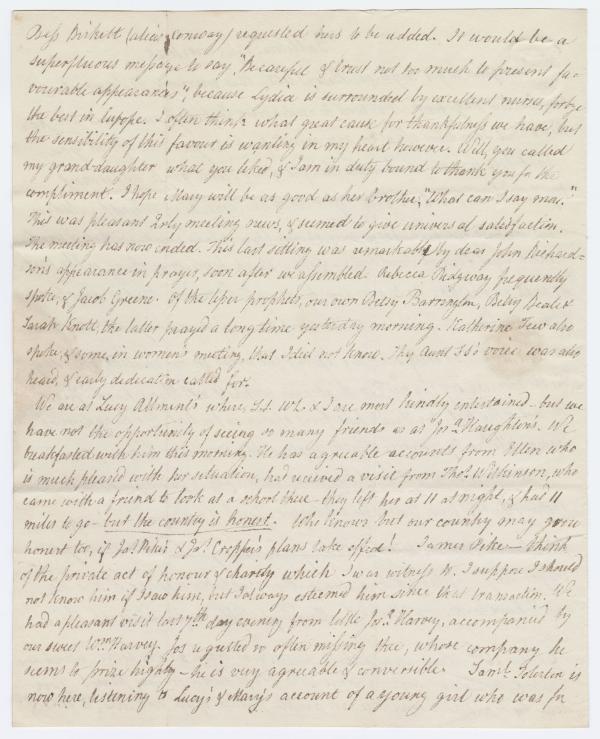 Bess Birkett (alias Conway) requested hers to be added. It would be a
superfluous message to say, "Be careful & trust not too much to present fa-
vourable appearances", because Lydia is surrounded by excellent nurses, forbye
the best in Europe. I often think what great cause for thankfulness we have, but
the sensibility of this favour is wanting in my heart however. Well, you called
my grand-daughter what you liked, & I am in duty bound to thank you for the
compliment. I hope Mary will be as good as her brother. "What can I say more."
This was pleasant Qrly meeting news, & seemed to give universal satisfaction.
The meeting has now ended. This last sitting was remarkable by dear John Richard-
son's appearance in prayer, soon after we assembled. Rebecca Ridgway frequently
spoke, & Jacob Greene. Of the lesser prophets, our own Betsy Barrington, Betsy Beale &
Sarah Knott, the latter prayed a long time yesterday morning. Katherine Few also
spoke, & some, in women's meeting, that I did not know. Thy Aunt voice was also
heard, & early dedication called for.
We are at Lucy Allment's where, & I are most kindly entertained - but we
have not the opportunity of seeing so many friends as at Jos. Haughton's. We
breakfasted with him this morning. He has agreeable accounts from Ellen who
is much pleased with her situation, had received a visit from Thos. Wilkinson, who
came with a friend to look at a school there - they left her at 11 at night, & had 11
miles to go - but the country is honest. Who knows but our country may grow
honest too, if Jas. Pike's & Jas. Cropper's plans take effect! James Pike - think
of the private act of honour & charity which I was witness to. I suppose I should
not know him if I saw him, but I always esteemed him since that transaction. We
had a pleasant visit last 7th day evening from little Jos. Harvey, accompanied by
our sweet Wm. Harvey. Jos. regretted so often missing thee, whose company he
seems to prize highly - he is very agreeable & conversible. Saml. is
now here, listening to Lucy's & Mary's account of a young girl who was for